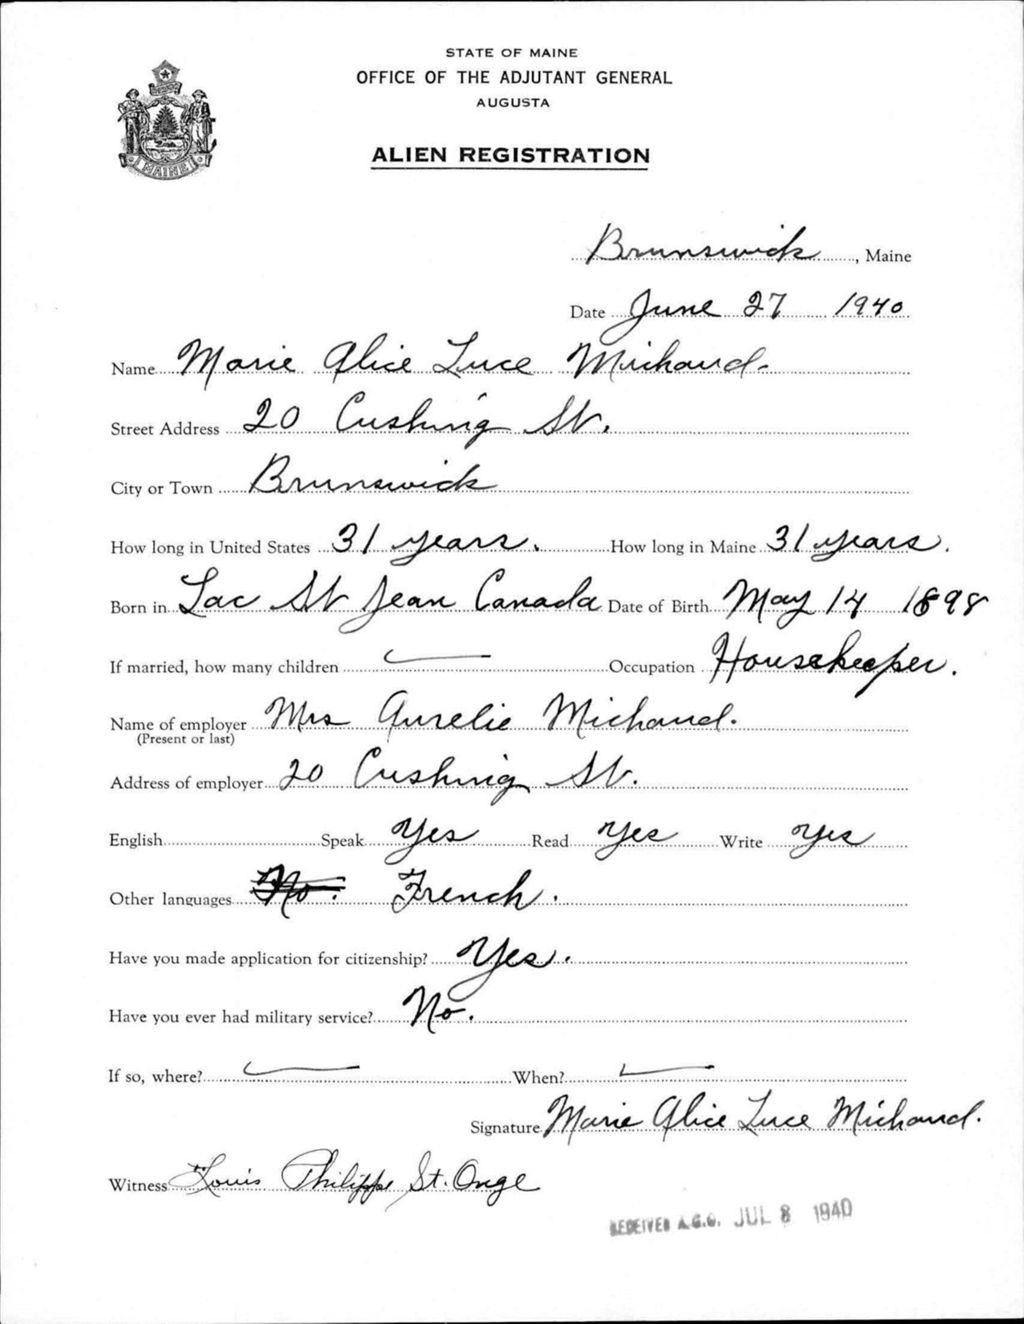 STATE OF MAINE
OFFICE OF THE ADJUTANT GENERAL
AUGUSTA
ALIEN REGISTRATION
MAINE
Brunswick, Maine
Date June 27 1940
Name Marie Alice Luce Michaud.
Street Address 20 Cushing St.
City or Town Brunswick
How long in United States 31 years. How long in Maine 31 years.
Born in Lac St Jean Canada Date of Birth May 14 1898
If married, how many children Occupation Housekeeper.
Name of employer Mrs Aurelie Michaud.
(Present or last)
Address of employer 20 Cushing St.
English Speak Yes Read Yes Write Yes
Other languages No. French.
Have you made application for citizenship? Yes.
Have you ever had military service? No.
If so, where? When?
Signature Marie Alice Luce Michaud.
Witness Louis Philippe St. Onge
RECEIVED A.G.O. JUL 8 1940